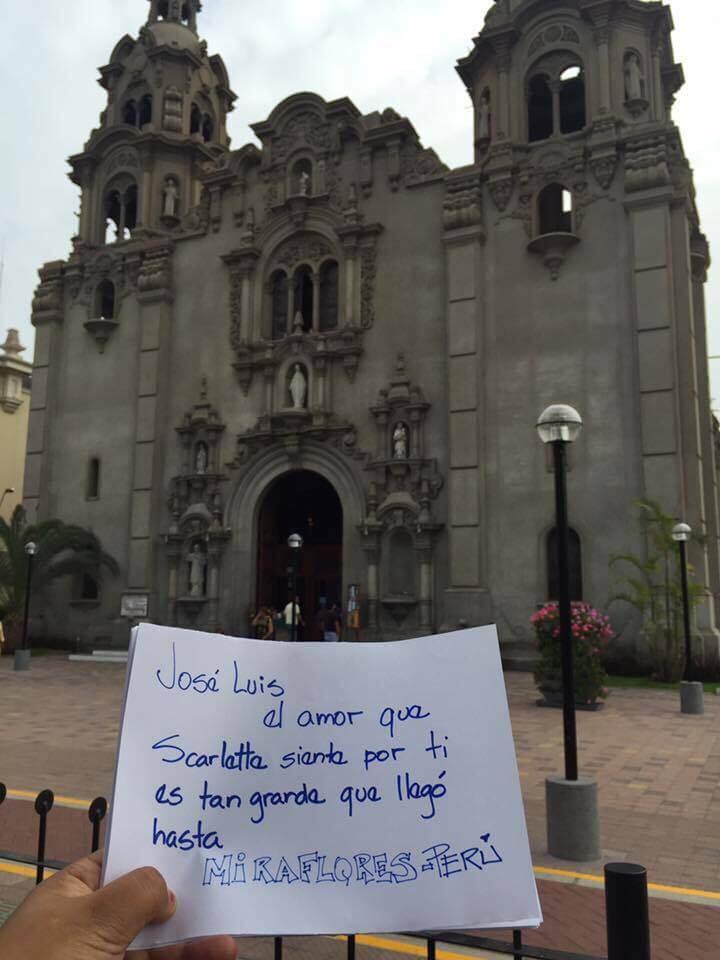 José Luis
el amor que
Scarlette siente por ti
es tan grande que llegó
hasta
MiRAFLORES-PERÚ